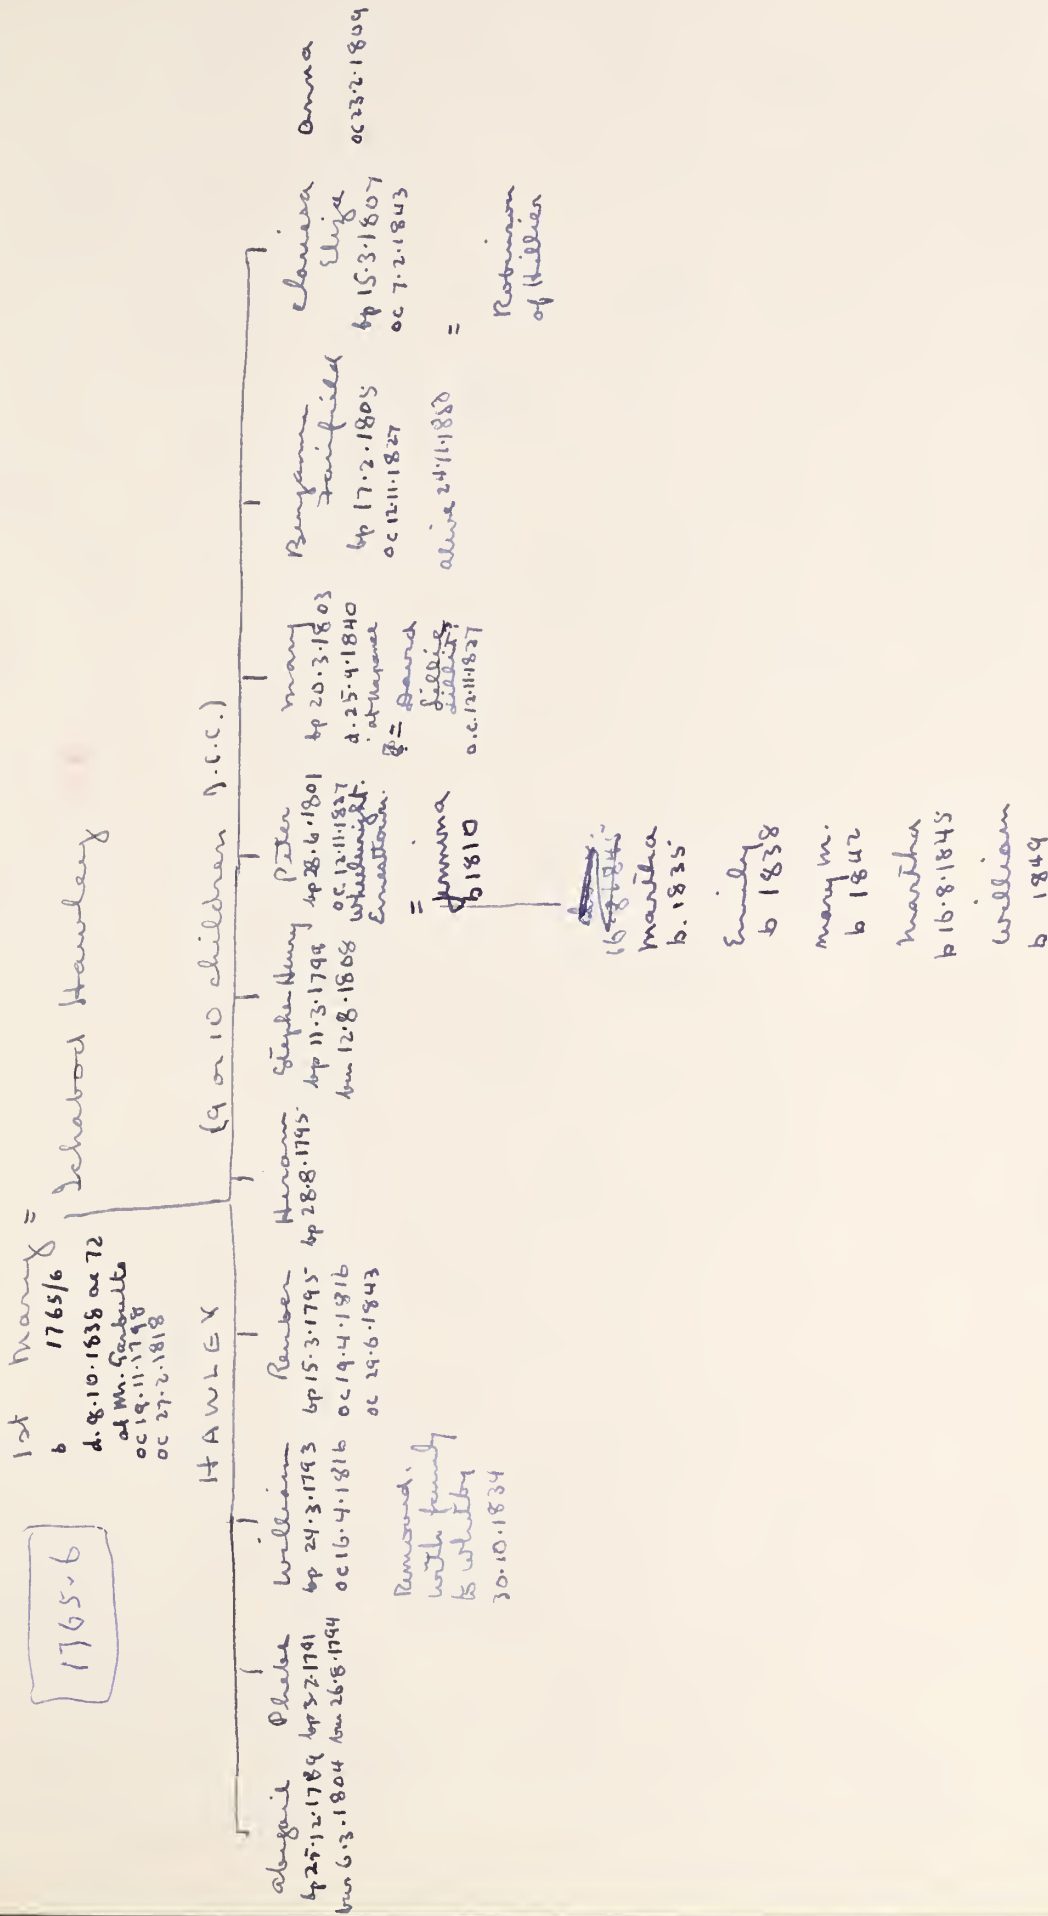 1765-6
1st Mary =
b 1765/6
d. 8.10.1838 ae 72
at Mr. Garbutts
oc 19.11.1798
oc 27.2.1818
Ichabod Hawley
HAWLEY
(9 or 10 children J.C.C.)
Abigail
bp 25.12.1789
bur 6.3.1804
Phebe
bp 3.2.1791
bur 26.8.1794
William
bp 24.3.1793
oc 16.4.1816
Removed.
with family
to Whitby
30.10.1834
Reuben
bp 15.3.1795
oc 19.4.1816
oc 29.6.1843
Hiram
bp 28.8.1795
Stephen Henry
bp 11.3.1799
bur 12.8.1808
Peter
bp 28.6.1801
oc 12.11.1827
Wheelwright.
Ernesttown.
=
Jemima
b 1810
16.8.1845
Martha
b. 1835
Emily
b 1838
Mary M.
b 1842
Martha
b 16.8.1845
William
b 1849
Mary
bp 20.3.1803
d. 25.4.1840
at Napanee
= David
o.c. 12.11.1827
Benjamin
Fairfield
bp 17.2.1805
oc 12.11.1827
alive 24.11.1850
Clarissa
Eliza
bp 15.3.1807
oc 7.2.1843
=
Robinson
of Hillier
Anna
oc 23.2.1809